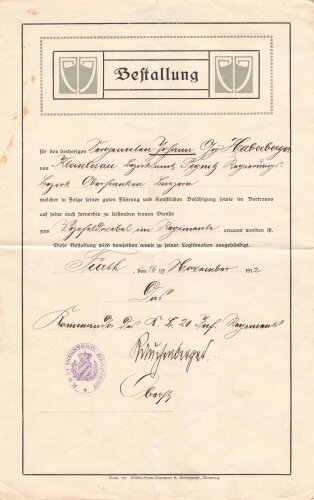 Bestallung
für den bisherigen Sergeanten Johann Haberberger
von Bezirksamt Pegnitz Regierungs
bezirk Oberfranken Bayern
welcher in Folge seiner guten Führung und dienstlichen Befähigung sowie im Vertrauen
auf seine auch fernerhin zu leistenden treuen Dienste
zum Vizefeldwebel im Regimente ernannt worden ist.
Diese Bestallung wird demselben anmit zu seiner Legitimation ausgehändigt.
Fürth, den 16ten November 1912
Das
Kommando des K. B. 21. Inf. Regiments
Oberst